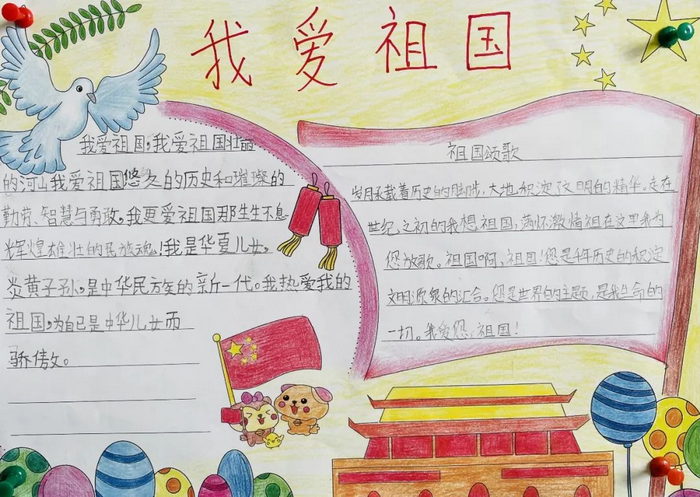 我爱祖国
我爱祖国,我爱祖国壮丽
的河山我爱祖国悠久的历史和璀璨的
勤劳、智慧与勇敢。我更爱祖国那生生不息
辉煌雄壮的民族魂!我是华夏儿女,
炎黄子孙,是中华民族的新一代。我热爱我的
祖国,为自己是中华儿女而
骄傲。
祖国颂歌
岁月承载着历史的脚步,大地积淀文明的精华。走在
世纪之初的我想祖国,满怀激情祖在这里我为
您放歌。祖国啊,祖国!您是千年历史的积淀
文明源泉的汇合。您是世界的主题,是我生命的
一切。我爱您,祖国!